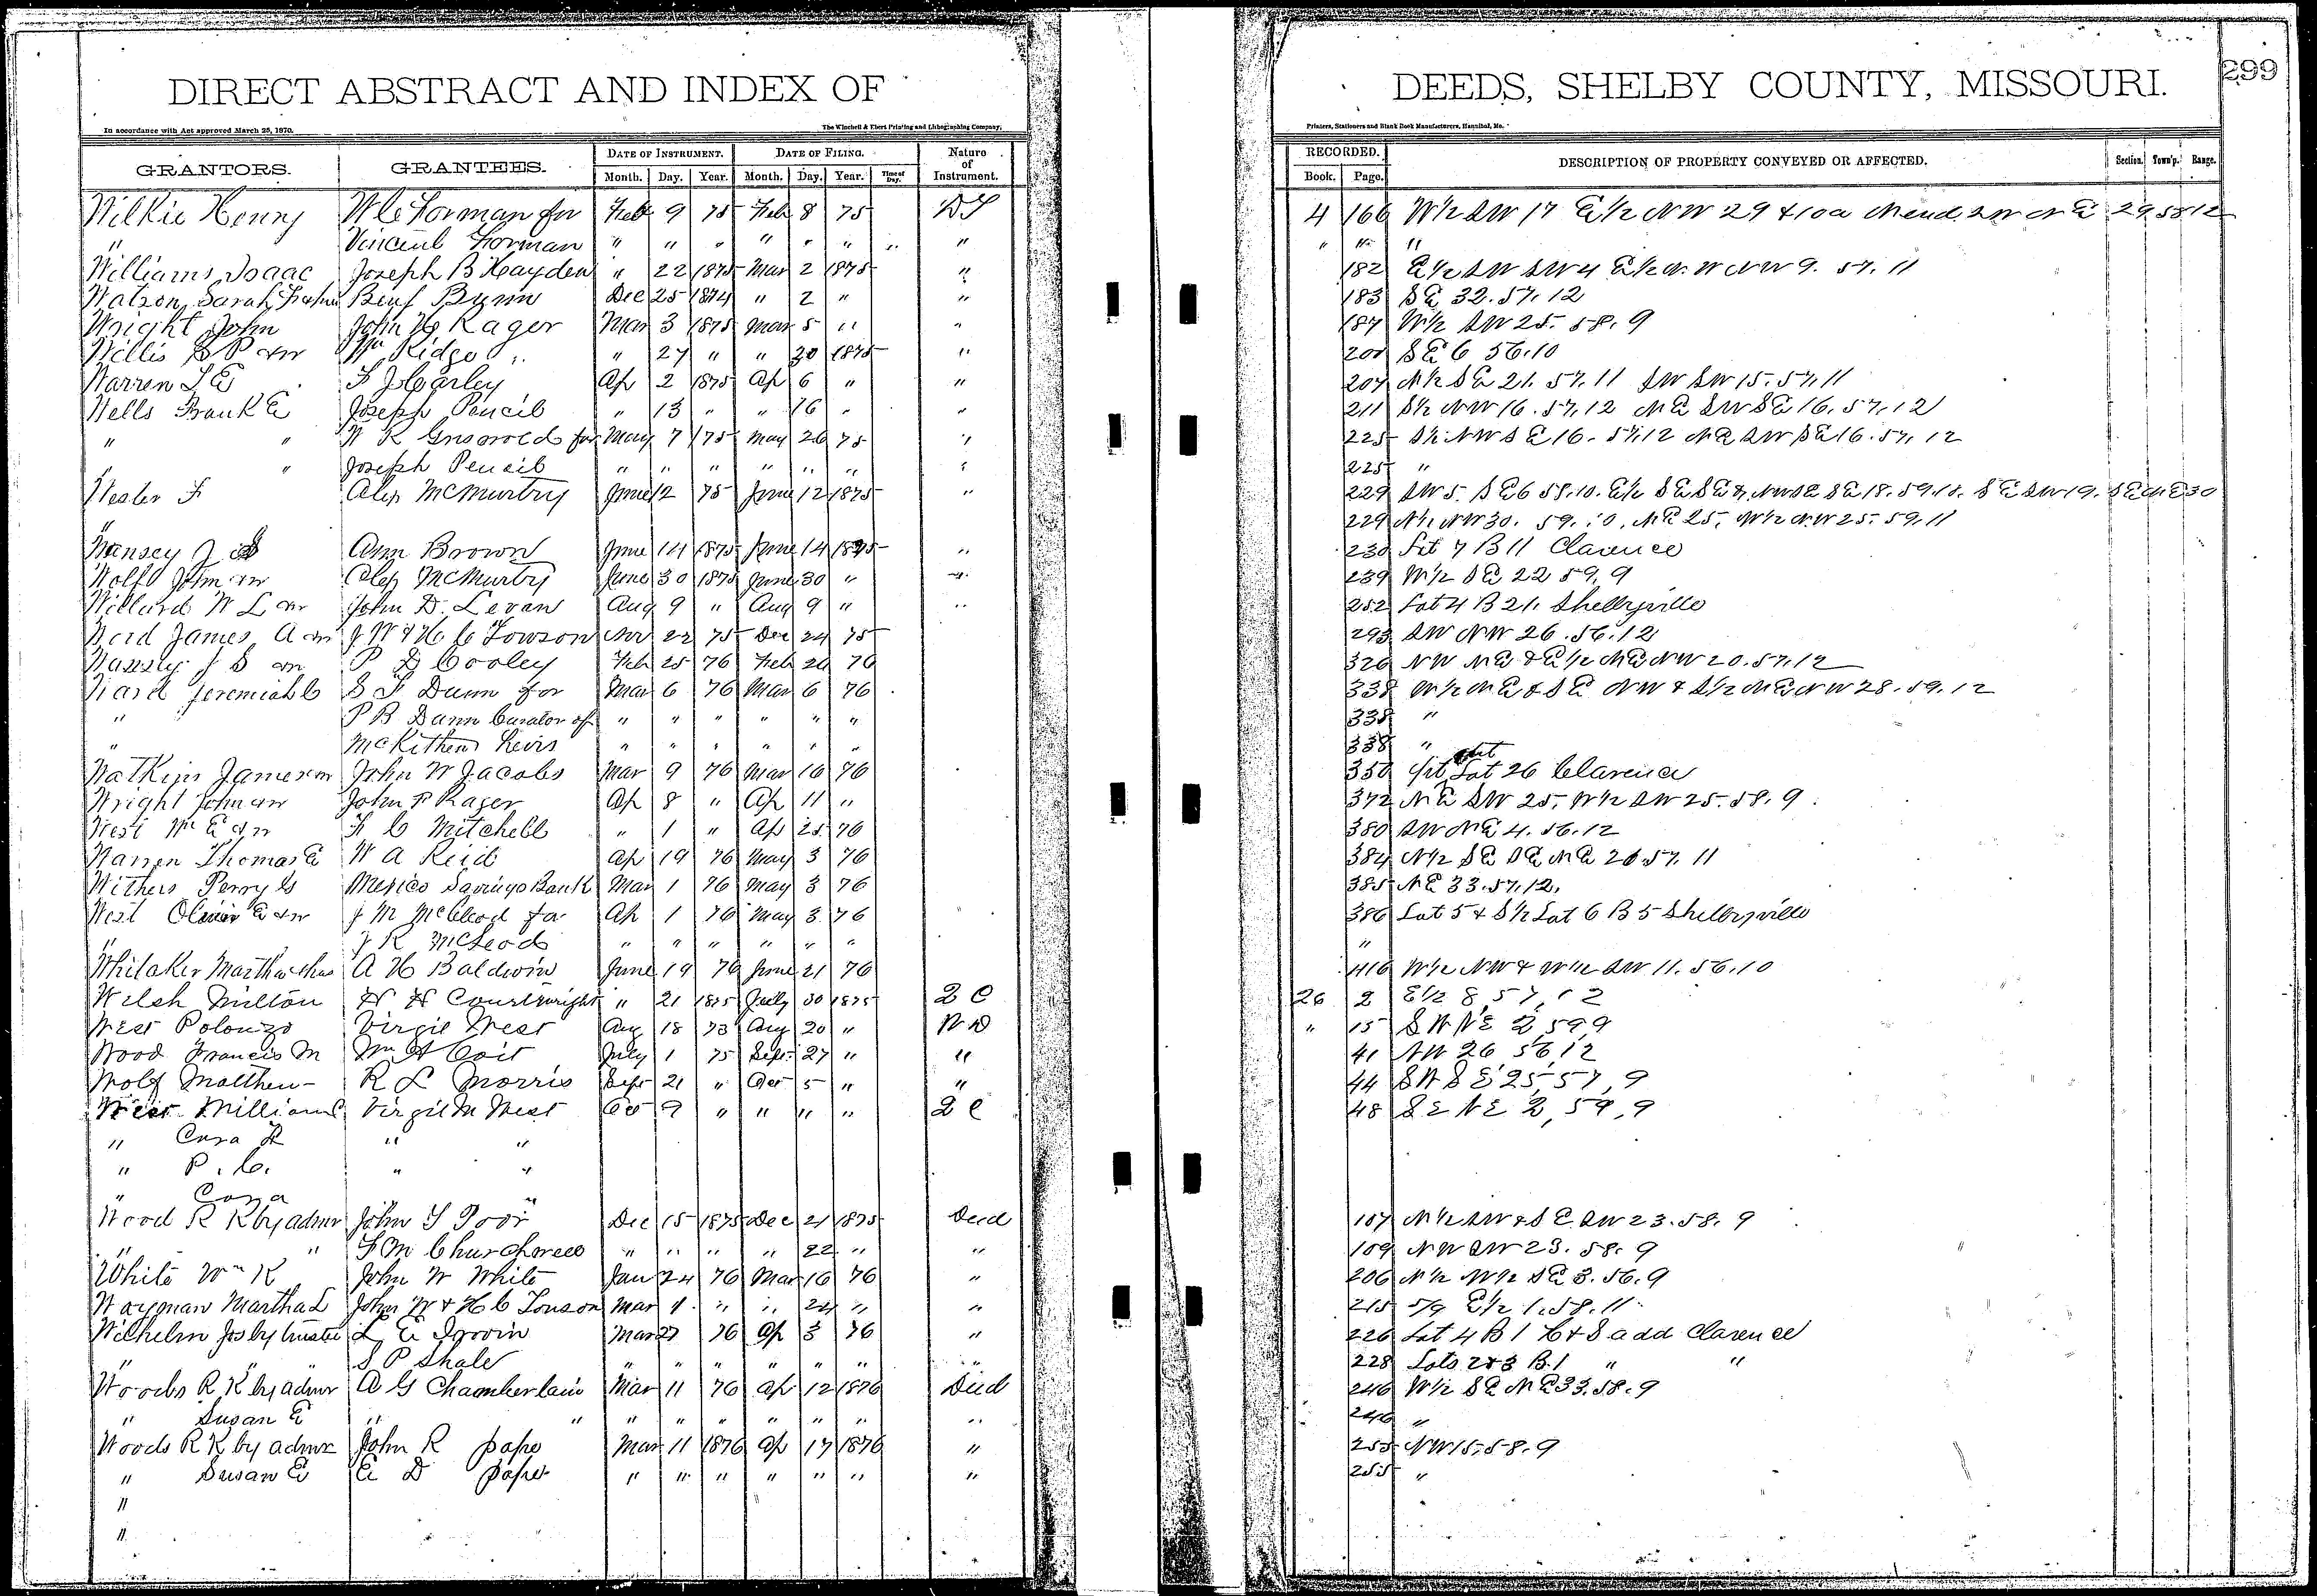 DIRECT ABSTRACT AND INDEX OF DEEDS, SHELBY COUNTY, MISSOURI. 299
In accordance with Act approved March 25, 1870. The Winchell & Ebert Printing and Lithographing Company, Printers, Stationers and Blank Book Manufacturers, Hannibal, Mo.
GRANTORS. GRANTEES. DATE OF INSTRUMENT. DATE OF FILING. Nature of Instrument. RECORDED. DESCRIPTION OF PROPERTY CONVEYED OR AFFECTED. Section. Town'p. Range.
Month. Day. Year. Month. Day. Year. Time of Day. Book. Page.
Wilkie Henry W C Forman for Feb 9 75 Feb 8 75 DT 4 166 W½ SW 17 E½ NW 29 & 10a N end SW NE 29 58 12
" Vincent Forman " " " " " " " " " " "
Williams Isaac Joseph B Hayden " 22 1875 Mar 2 1875 " 182 E½ SW SW 4 E½ N.W NW 9. 57. 11
Watson Sarah Benj Bunn Dec 25 1874 " 2 " " 183 SE 32. 57. 12
Wright John John Rager Mar 3 1875 Mar 5 " " 187 W½ SW 25. 58. 9
Willis P &w Wm Ridge " 27 " " 30 1875 " 201 SE 6 56.10
Warren T E F J Carley Ap 2 1875 Ap 6 " " 207 N½ SE 21. 57. 11 SW SW 15. 57. 11
Wells Frank E Joseph Pencil " 13 " " 16 " " 211 S½ NW 16. 57. 12 NE SW SE 16. 57. 12
" " W R Griswold for May 7 75 May 26 75 " 225 S½ NW SE 16. 57. 12 NE SW SE 16. 57. 12
" " Joseph Pencil " " " " " " " 225 "
Wester F Alex McMurtry June 12 75 June 12 1875 " 229 SW 5. SE 6 58.10. E½ SE SE & NW SE SE 18. 59.10. SE SW 19. SE NE 30
" 229 N½ NW 30. 59. 10. NE 25, W½ NW 25. 59. 11
J S Ann Brown June 14 1875 June 14 1875 " 230 Lot 7 B 11 Clarence
Wolf John &w Alex McMurtry June 30 1875 June 30 " " 239 W½ SE 22 59. 9
Willard W L &w John D. Levan Aug 9 " Aug 9 " " 252 Lot 4 B 21. Shelbyville
Ward James A &w J W & H C Towson Nov 22 75 Dec 24 75 293 SW NW 26. 56. 12
J S &w P D Cooley Feb 25 76 Feb 26 76 326 NW NE & E½ NE NW 20. 57. 12
Ward Jeremiah C S F Dunn for Mar 6 76 Mar 6 76 338 W½ NE & SE NW & S½ NE NW 28. 59. 12
" P B Dunn Curator of " " " " " " 338 "
" McKithen heirs " " " " " " 338 "
Watkins James &w John W Jacobs Mar 9 76 Mar 16 76 350 pt out Lot 26 Clarence
Wright John &w John F Rager Ap 8 " Ap 11 " 372 NE SW 25. W½ SW 25. 58. 9
West Wm E &w F C Mitchell " 1 " Ap 25 76 380 SW NE 4. 56. 12
Warren Thomas E W A Reid Ap 19 76 May 3 76 384 N½ SE SE NE 21. 57. 11
Withers Perry G Mexico Savings Bank Mar 1 76 May 3 76 385 NE 33. 57. 12.
West Oliver E &w J M McCleod for Ap 1 76 May 3 76 386 Lot 5 & S½ Lot 6 B 5 Shelbyville
" J R McLeod " " " " " " "
Whitaker Martha A H Baldwin June 19 76 June 21 76 416 W½ NW & W½ SW 11. 56. 10
Welsh Milton H H Courtwright " 21 1875 July 30 1875 2 C 26 2 E½ 8, 57, 12
West Polonzo Virgil West Aug 18 73 Aug 20 " W D " 15 S W N E 2, 59 9
Wood Francis M Wm H Coit July 1 75 Sept 27 " " 41 NW 26 56, 12
Wolf Matthew R L Morris Sept 21 " Oct 5 " " 44 S W S E 25, 57, 9
West William Virgil M West Oct 9 " " " " 2 C 48 S E N E 2, 59, 9
" Cora " "
" P. C. " "
" Cora "
Wood R K by admr John T Poor Dec 15 1875 Dec 21 1875 Deed 107 N½ SW & SE SW 23. 58. 9
" " F M Churchwell " " " " 22 " " 109 NW SW 23. 58. 9
White Wm K John W White Jan 24 76 Mar 16 76 " 206 N½ W½ SE 3. 56. 9
Wayman Martha L John W & H C Towson Mar 4 " " 24 " " 215 5/9 E½ 1. 58. 11.
Wilhelm Jos by trustee L E Irwin Mar 27 76 Ap 3 76 " 226 Lot 4 B 1 C & S add Clarence
" " " S P Shale " " " " " " " 228 Lots 2 & 3 B.1 " "
Woods R K by admr A G Chamberlain Mar 11 76 Ap 12 1876 Deed 246 W½ SE NE 33. 58. 9
" Susan E " " " " " " " " " 246 "
Woods R K by admr John R pape Mar 11 1876 Ap 17 1876 " 255 NW 15. 58. 9
" Susan E E D pape " " " " " " " 255 "
"
"